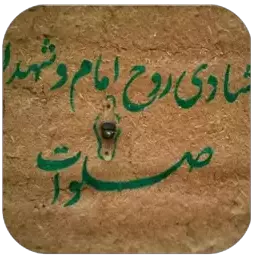 شادی روح امام و شهدا
صلوات